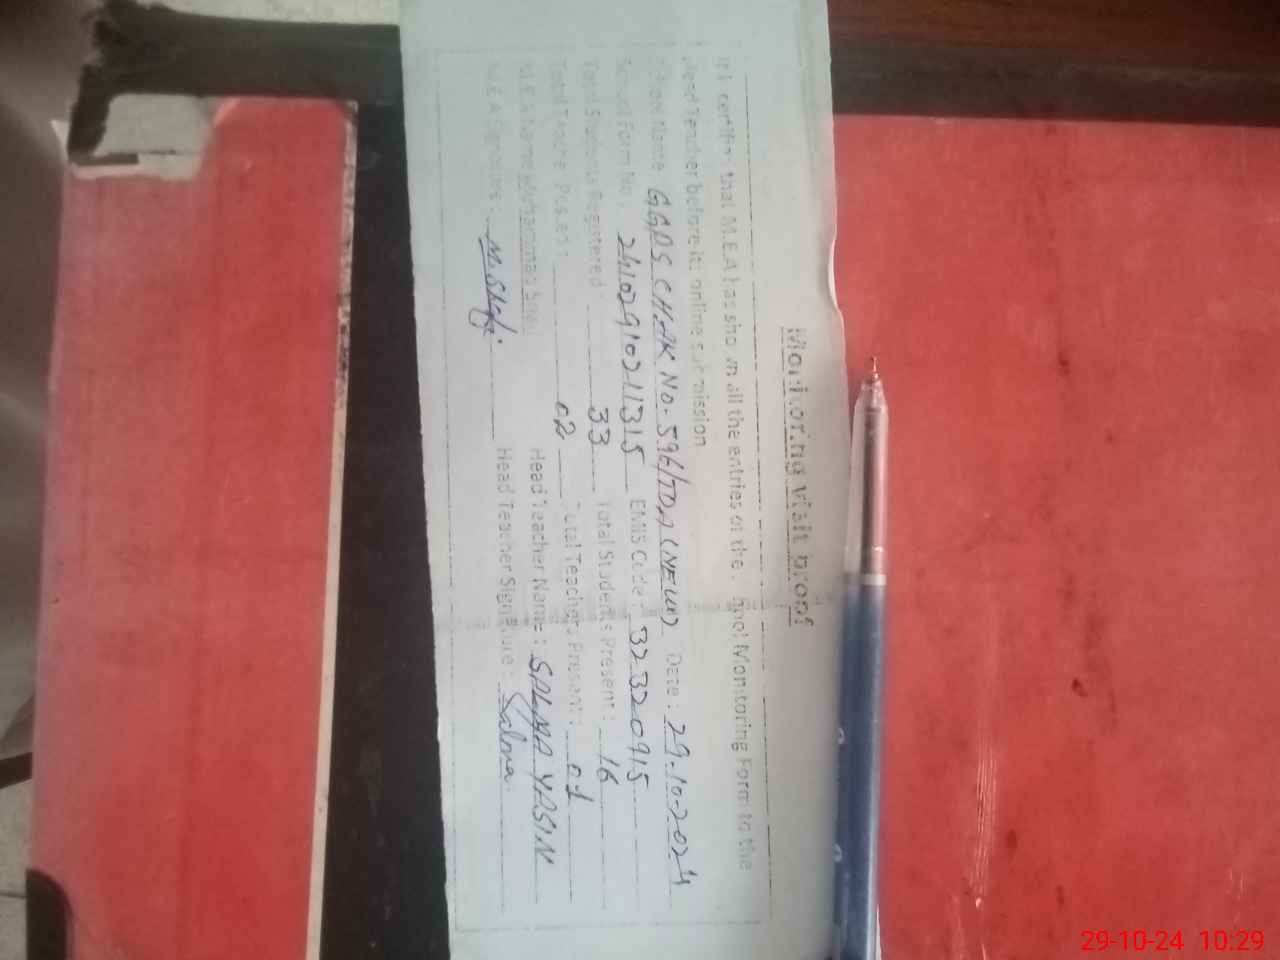 Monitoring Visit Proof
that M.E.A has shown all the entries of the School Monitoring Form to the
Head Teacher before its online submission
School Name GGPS CHAK NO. 596/TDA (NEW) Date: 29-10-2024
School Form No. 241029102111315 EMIS Code: 32320915
Total Students Registered: 33 Total Students Present: 16
Total Teacher Posted: 02 Total Teachers Present: 01
M.E.A Name Muhammad Head Teacher Name: SALMA YASIN
M.E.A Signature: M. Shafi Head Teacher Signature: Salma.
29-10-24 10:29